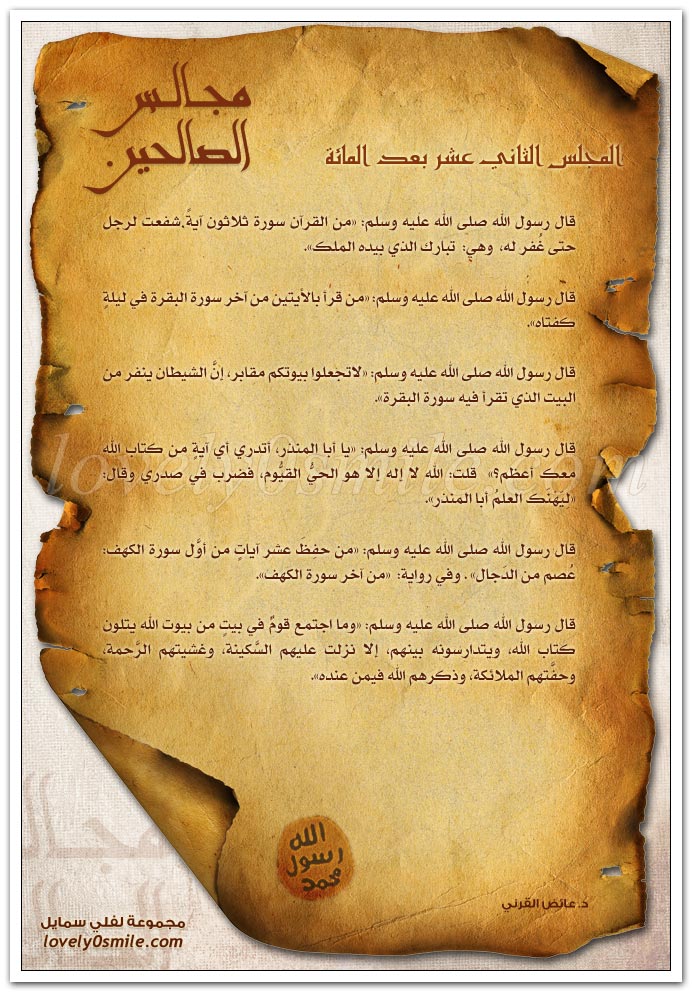 مجالس
الصالحين
المجلس الثاني عشر بعد المائة
قال رسول الله صلى الله عليه وسلم: «من القرآن سورة ثلاثون آيةً شفعت لرجل
حتى غُفر له، وهي: تبارك الذي بيده الملك».
قال رسول الله صلى الله عليه وسلم: «من قرأ بالأيتين من آخر سورة البقرة في ليلةٍ
كفتاه».
قال رسول الله صلى الله عليه وسلم: «لاتجعلوا بيوتكم مقابر، إنَّ الشيطان ينفر من
البيت الذي تقرأ فيه سورة البقرة».
قال رسول الله صلى الله عليه وسلم: «يا أبا المنذر، أتدري أي آيةٍ من كتاب الله
معك أعظم؟» قلت: الله لا إله إلا هو الحيُّ القيُّوم، فضرب في صدري وقال:
«ليَهْنك العلمُ أبا المنذر».
قال رسول الله صلى الله عليه وسلم: «من حفظَ عشر آياتٍ من أوَّل سورة الكهف:
عُصم من الدجال» . وفي رواية: «من آخر سورة الكهف».
قال رسول الله صلى الله عليه وسلم: «وما اجتمع قومٌ في بيتٍ من بيوت الله يتلون
كتاب الله، ويتدارسونه بينهم، إلا نزلت عليهم السَّكينة، وغشيتهم الرَّحمة،
وحفَّتهم الملائكة، وذكرهم الله فيمن عنده».
lovely0smile.com
الله
رسول
محمد
د.عائض القرني
مجموعة لفلي سمايل
lovely0smile.com